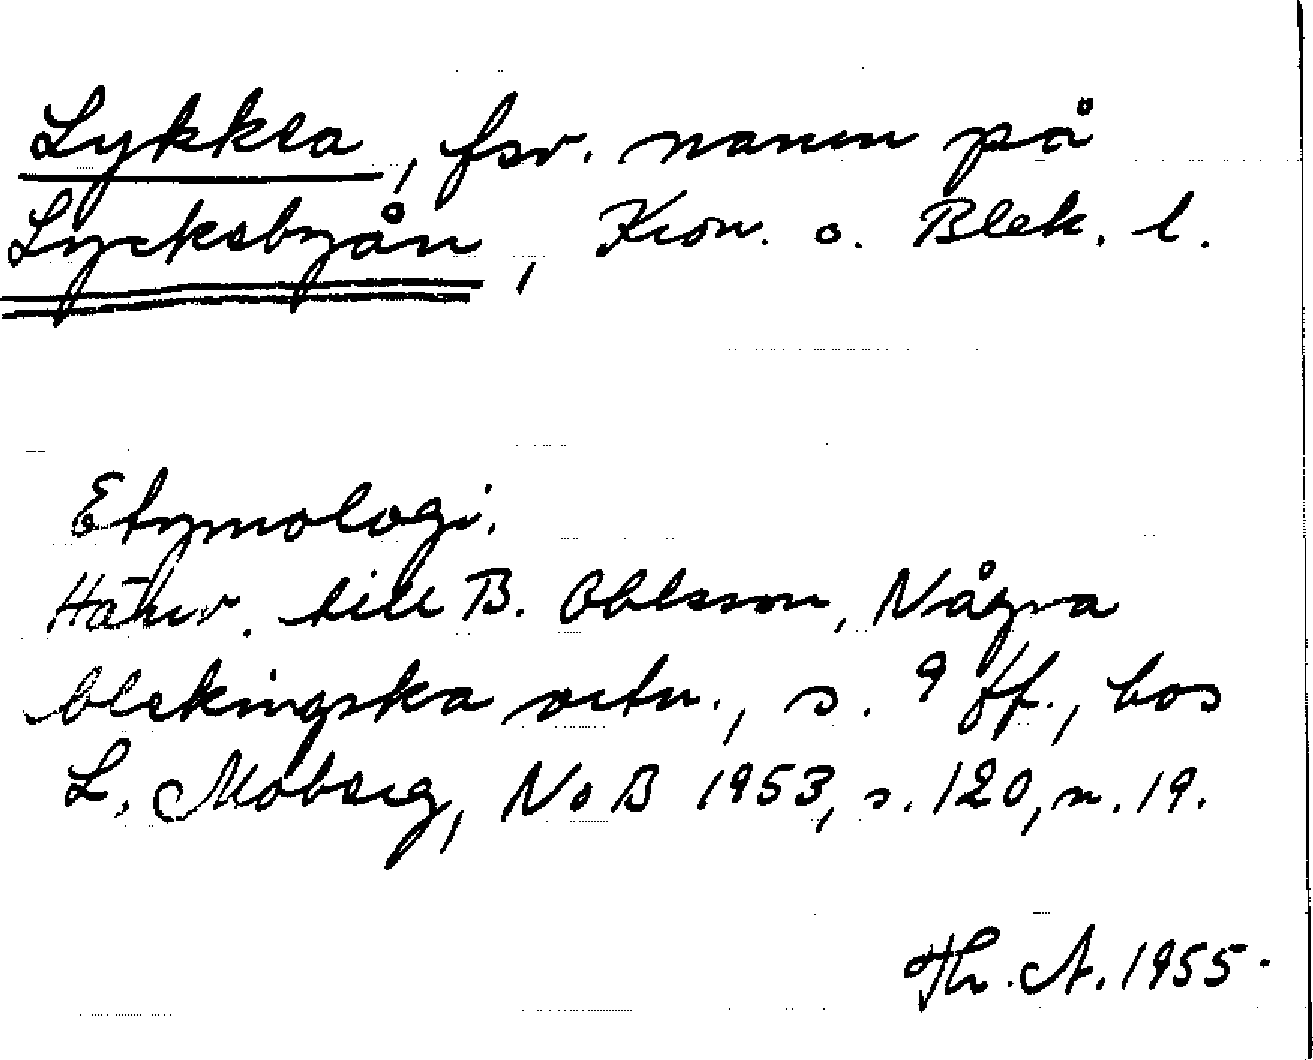 Lykkea, fsv. namn på
Lyckebyån, Kron. o. Blek. l.
Etymologi.
Hänv. till B. Ohlsson, Några
blekingska ortn., s. 9 ff., hos
L. Moberg, NoB 1953, s. 120, n. 19.
Th. A. 1955.